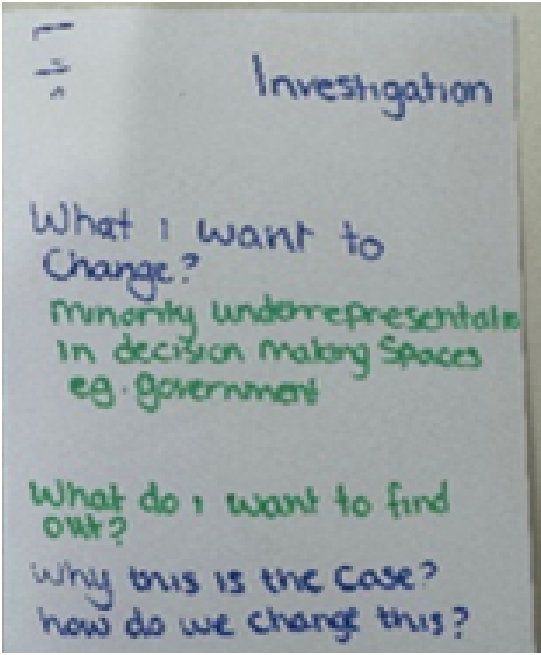 Investigation
What i want to
Change?
minority underrepresentation
in decision making spaces
eg. government
What do i want to find
out?
Why this is the case?
how do we change this?